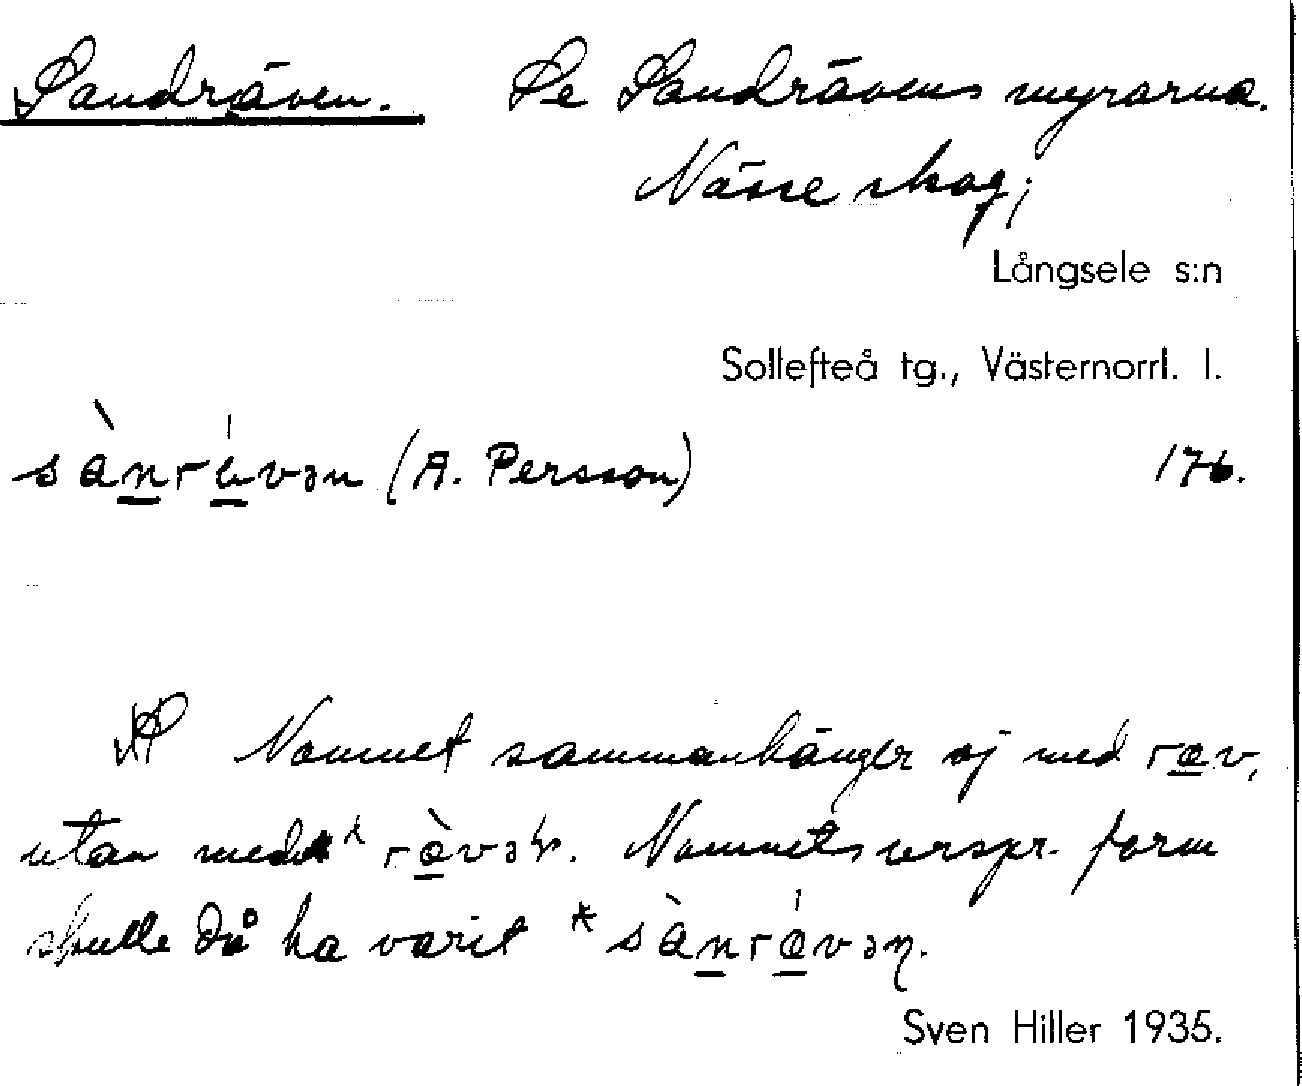 Sandräven. Se Sandrävens myrarna.
Näsre skog;
Långsele s:n
Sollefteå tg., Västernorrl. l.
sàn̲rá̲vən (A. Persson) 176.
Namnet sammanhänger ej med ræ̲v,
utan med * ræ̲̀vəl. Namnets urspr. form
skulle då ha varit * sàn̲rǽ̲vən.
Sven Hiller 1935.